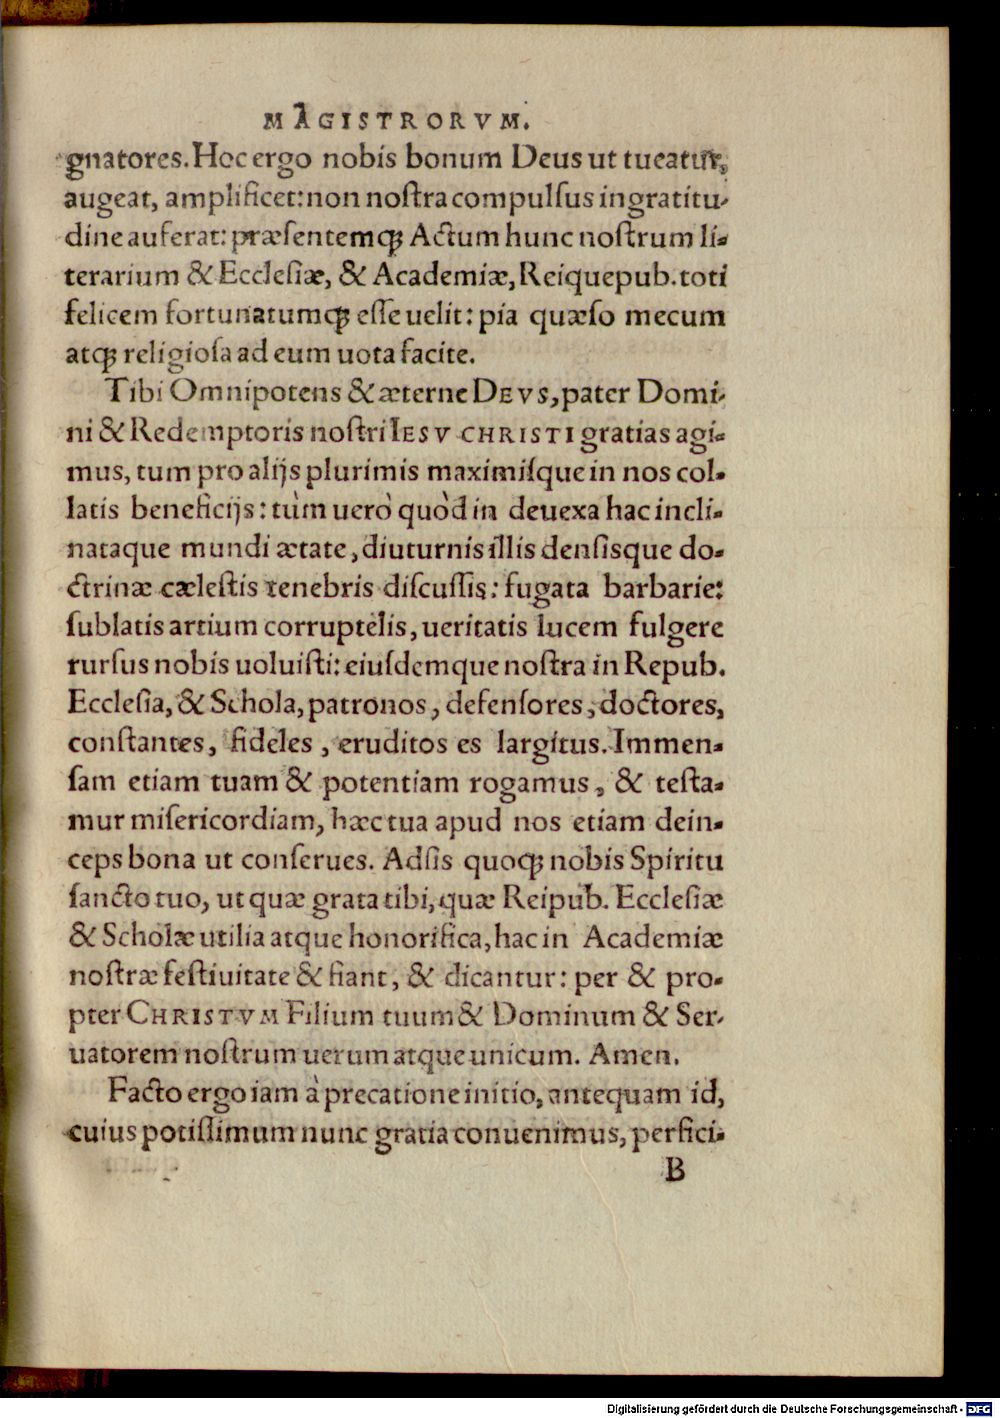 MAGISTRORVM.
gnatores. Hoc ergo nobis bonum Deus ut tueatur,
augeat, amplificet: non nostra compulsus ingratitu-
dine auferat: præsentemq́; Actum hunc nostrum li-
terarium & Ecclesiæ, & Academiæ, Reiquepub. toti
felicem fortunatumq́; esse uelit: pia quæso mecum
atq; religiosa ad eum uota facite.
Tibi Omnipotens & æterne DEVS, pater Domi-
ni & Redemptoris nostri IESV CHRISTI gratias agi-
mus, tum pro alijs plurimis maximisque in nos col-
latis beneficijs: tùm uerò quòd in deuexa hac incli-
nataque mundi ætate, diuturnis illis densisque do-
ctrinæ cælestis tenebris discussis: fugata barbarie:
sublatis artium corruptelis, ueritatis lucem fulgere
rursus nobis uoluisti: eiusdemque nostra in Repub.
Ecclesia, & Schola, patronos, defensores, doctores,
constantes, fideles, eruditos es largitus. Immen-
sam etiam tuam & potentiam rogamus, & testa-
mur misericordiam, hæc tua apud nos etiam dein-
ceps bona ut conserues. Adsis quoq; nobis Spiritu
sancto tuo, ut quæ grata tibi, quæ Reipub. Ecclesiæ
& Scholæ utilia atque honorifica, hac in Academiæ
nostræ festiuitate & fiant, & dicantur: per & pro-
pter CHRISTVM Filium tuum & Dominum & Ser-
uatorem nostrum uerum atque unicum. Amen.
Facto ergo iam à precatione initio, antequam id,
cuius potissimum nunc gratia conuenimus, perfici-
B
Digitalisierung gefördert durch die Deutsche Forschungsgemeinschaft - DFG